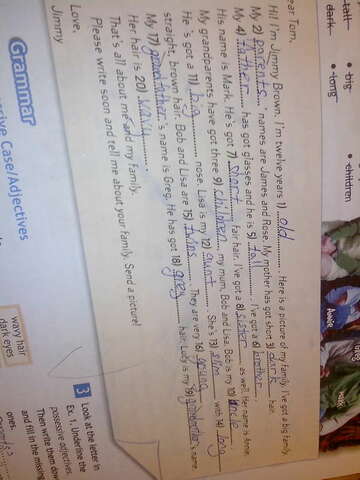 tall • big
dark • long
• children
ear Tom,
Hi! I'm Jimmy Brown. I'm twelve years 1) old. Here is a picture of my family. I've got a big family.
My 2) parents' names are James and Rose. My mother has got short 3) dark hair.
My 4) father has got glasses and he is 5) tall. I've got a 6) brother.
His name is Mark. He's got 7) short fair hair. I've got a 8) sister as well. Her name is Annie.
My grandparents have got three 9) children, my mum, Bob and Lisa. Bob is my 10) uncle.
He's got a 11) big nose. Lisa is my 12) aunt. She's 13) slim with 14) long
straight, brown hair. Bob and Lisa are 15) twins. They are very 16)
My 17) grandfather's name is Greg. He has got 18) grey hair. Lady is my 19) grandmother's name.
Her hair is 20) wavy.
That's all about me and my family.
Please write soon and tell me about your family. Send a picture!
Love,
Jimmy
Grammar
Case/Adjectives
wavy hair
dark eyes
3 Look at the letter in
Ex. 1. Underline the
possessive adjectives.
Then write them down
and fill in the missing
ones.
Annie
Greg